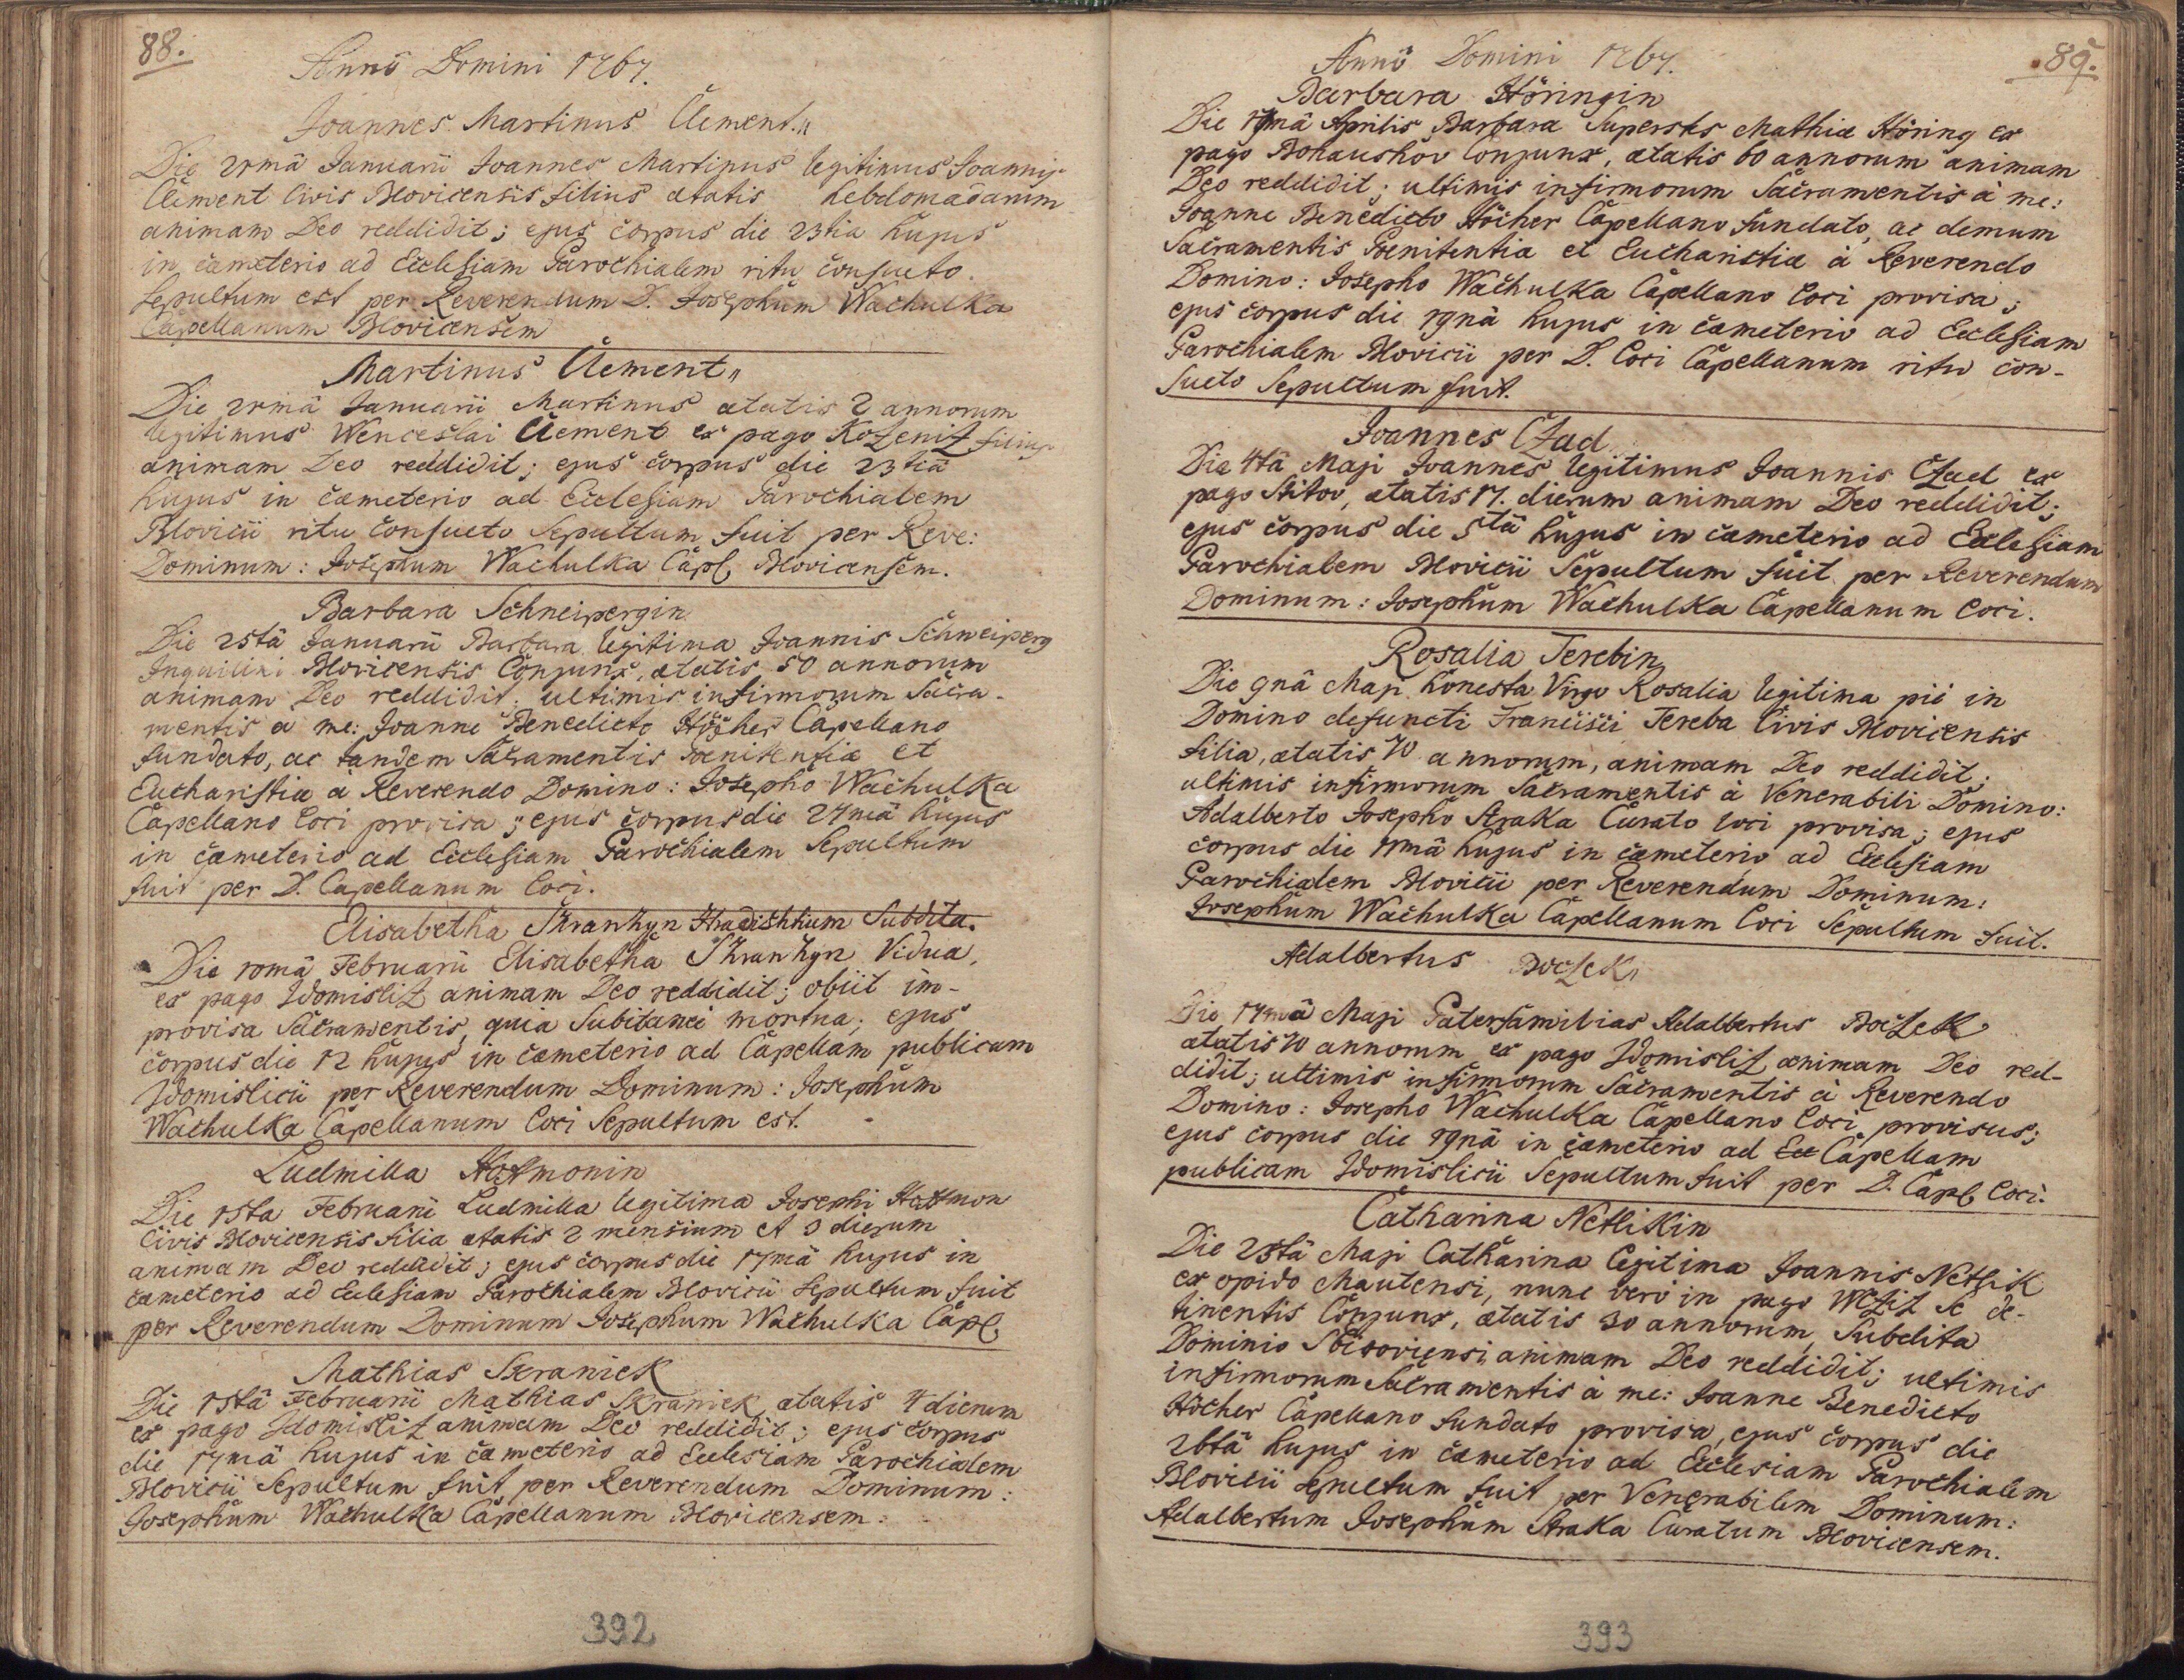 88.
Anno Domini 1767.
Joannes Martinus Clement.
Die 21mâ Januarii Joannes Martinus legitimus Joannis
Clement Civis Blovicensis filius ætatis hebdomadarum
animam Deo reddidit; ejus corpus die 23tia hujus
in cæmeterio ad Ecclesiam Parochialem ritu consueto
sepultum est per Reverendum D. Josephum Wachulka
Capellanum Blovicensem
Martinus Clement
Die 21mâ Januarii Martinus ætatis 2 annorum
legitimus Wenceslai Clement ex pago Kozeniz filius
animam Deo reddidit; ejus corpus die 23tiâ
hujus in cæmeterio ad Ecclesiam Parochialem
Blovicii ritu consueto Sepultum fuit per Reve:
Dominum: Josephum Wachulka Capl. Blovicensem.
Barbara Schneipergin
Die 25tâ Januarii Barbara legitima Joannis Schneiperg
Inquilini Blovicensis Conjunx, ætatis 50 annorum
animam Deo reddidit; ultimis infirmorum Sacra-
mentis a me: Joanne Benedicto Höcher Capellano
fundato, ac tandem Sacramentis Pœnitentiæ et
Eucharistiæ à Reverendo Domino: Josepho Wachulka
Capellano loci provisa; ejus corpus die 27mâ hujus
in cæmeterio ad Ecclesiam Parochialem Sepultum
fuit per D. Capellanum loci.
Elisabetha Skranhyn Hradishtium Subdita.
Die 10mâ Februarii Elisabetha Skranhyn Vidua,
ex pago Zdomisliz animam Deo reddidit; obiit im-
provisa Sacramentis, quia Subitanei mortua; ejus
corpus die 12 hujus in cæmeterio ad Capellam publicam
Zdomislicii per Reverendum Dominum: Josephum
Wachulka Capellanum loci Sepultum est.
Ludmilla Hoffmonin
Die 15ta Februarii Ludmilla legitima Josephi Hoffmon
Civis Blovicensis filia ætatis 2 mensium et 3 dierum
animam Deo reddidit; ejus corpus die 17mâ hujus in
cæmeterio ad Ecclesiam Parochialem Blovicii sepultum fuit
per Reverendum Dominum Josephum Wachulka Capl.
Mathias Skraniek
Die 15tâ Februarii Mathias Skraniek ætatis 4 dierum
ex pago Zdomisliz animam Deo reddidit; ejus corpus
die 17mâ hujus in cæmeterio ad Ecclesiam Parochialem
Blovicii Sepultum fuit per Reverendum Dominum:
Josephum Wachulka Capellanum Blovicensem.
392
89.
Anno Domini 1767.
Barbara Höringin
Die 17mâ Aprilis Barbara Superstes Mathiæ Höring ex
pago Bohaushov Conjunx, ætatis 60 annorum animam
Deo reddidit; ultimis infirmorum Sacramentis à me:
Joanne Benedicto Höcher Capellano fundato, ac demum
Sacramentis Pœnitentiæ et Eucharistiæ à Reverendo
Domino: Josepho Wachulka Capellano loci provisa;
ejus corpus die 19nâ hujus in cæmeterio ad Ecclesiam
Parochialem Blovicii per D. loci Capellanum ritu con-
sueto Sepultum fuit.
Joannes Czad
Die 4tâ Maji Joannes legitimus Joannis Czad ex
pago Stitov, ætatis 17. dierum animam Deo reddidit;
ejus corpus die 5tâ hujus in cæmeterio ad Ecclesiam
Parochialem Blovicii Sepultum fuit per Reverendum
Dominum: Josephum Wachulka Capellanum loci.
Rosalia Terebin
Die 9nâ Maji honesta Virgo Rosalia legitima pié in
Domino defuncti Francisci Tereba Civis Blovicensis
filia, ætatis 70 annorum, animam Deo reddidit;
ultimis infirmorum Sacramentis à Venerabili Domino:
Adalberto Josepho Straka Curato loci provisa; ejus
corpus die 11mâ hujus in cæmeterio ad Ecclesiam
Parochialem Blovicii per Reverendum Dominum:
Josephum Wachulka Capellanum loci Sepultum fuit.
Adalbertus Boczek
Die 17mâ Maji Paterfamilias Adalbertus Boczek
ætatis 70 annorum ex pago Zdomisliz animam Deo red-
didit; ultimis infirmorum Sacramentis à Reverendo
Domino: Josepho Wachulka Capellano loci provisus;
ejus corpus die 19nâ in cæmeterio ad Ecc Capellam
publicam Zdomislicii Sepultum fuit per D. Capl. loci.
Catharina Netlikin
Die 25tâ Maji Catharina legitima Joannis Netlik
ex opido Mautensi, nunc verò in pago Weziz se de-
tinentis Conjunx, ætatis 30 annorum, Subdita
Dominio animam Deo reddidit; ultimis
infirmorum Sacramentis à me: Joanne Benedicto
Höcher Capellano fundato provisa, ejus corpus die
26tâ hujus in cæmeterio ad Ecclesiam Parochialem
Blovicii Sepultum fuit per Venerabilem Dominum:
Adalbertum Josephum Straka Curatum Blovicensem.
393